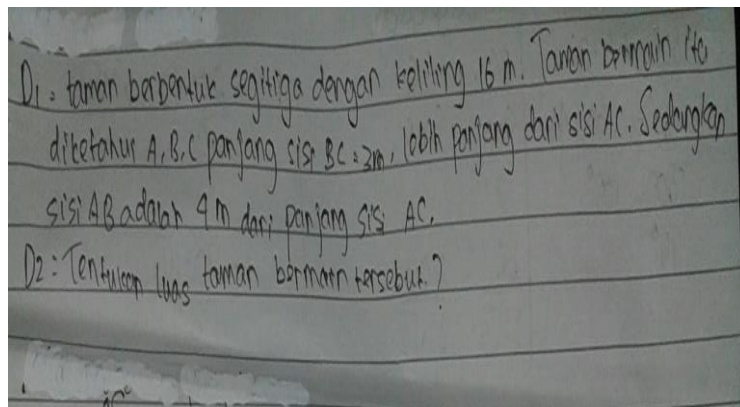 D1 : taman berbentuk segitiga dengan keliling 16 m. Taman bermain ito
diketahui A, B, C panjang sisi BC = 3m, lebih panjang dari sisi AC. Sedangkan
sisi AB adalah 4 m dari panjang sisi AC.
D2 : Tentukan luas taman bermain tersebut?